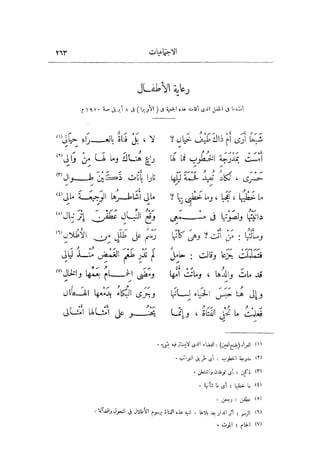 الاجتماعيات
٢٦٣
رعاية الأطفال
أنشدها فى الحفل الذى أقامته هذه الجمعية فى (الأوبرا) فى ٨ أبريل سنة ١٩١٠ م
شبحًا أرى أم ذاك طيف خيال ؟ لا ، بل فتاة بالعراء حيالى (١)
أمست بمدرجة الخطوب فما لها راع هناك وما لها من والى (٢)
حسرى ، تكاد تعيد فحمة ليلها نارا بأنات ذكين طوال (٣)
ما خطبها ، عجبا ، وما خطبى بها ؟ مالى أشاطرها الوجيعة مالى (٤)
دانيتها ولصوتها فى مسمعى وقع النبال عطفن إثر نبال (٥)
وسألتها : من أنت ؟ وهى كأنها رسم على طلل من الأطلال (٦)
فتململت جزعا وقالت : حامل لم تدر طعم الغمض منذ ليالى
قد مات والدها ، وماتت أمها ومضى الحمام بعمها والخال (٧)
وإلى هنا حبس الحياء لسانها وجرى البكاء بدمعها الهطال
فعلمت ما تخفى الفتاة ، وإنما يحنو على أمثالها أمثالى
(١) العراء (بفتح العين) : الفضاء الذى لا يستتر فيه بشىء .
(٢) مدرجة الخطوب : أى طريق النوائب .
(٣) ذكين ، أى توقدن واشتعلن .
(٤) ما خطبها ؛ أى ما شأنها .
(٥) عطفن :
(٦) الرسم : أثر الدار بعد بلاها . شبه هذه الفتاة برسوم الأطلال فى النحول والضآلة .
(٧) الحمام : الموت .